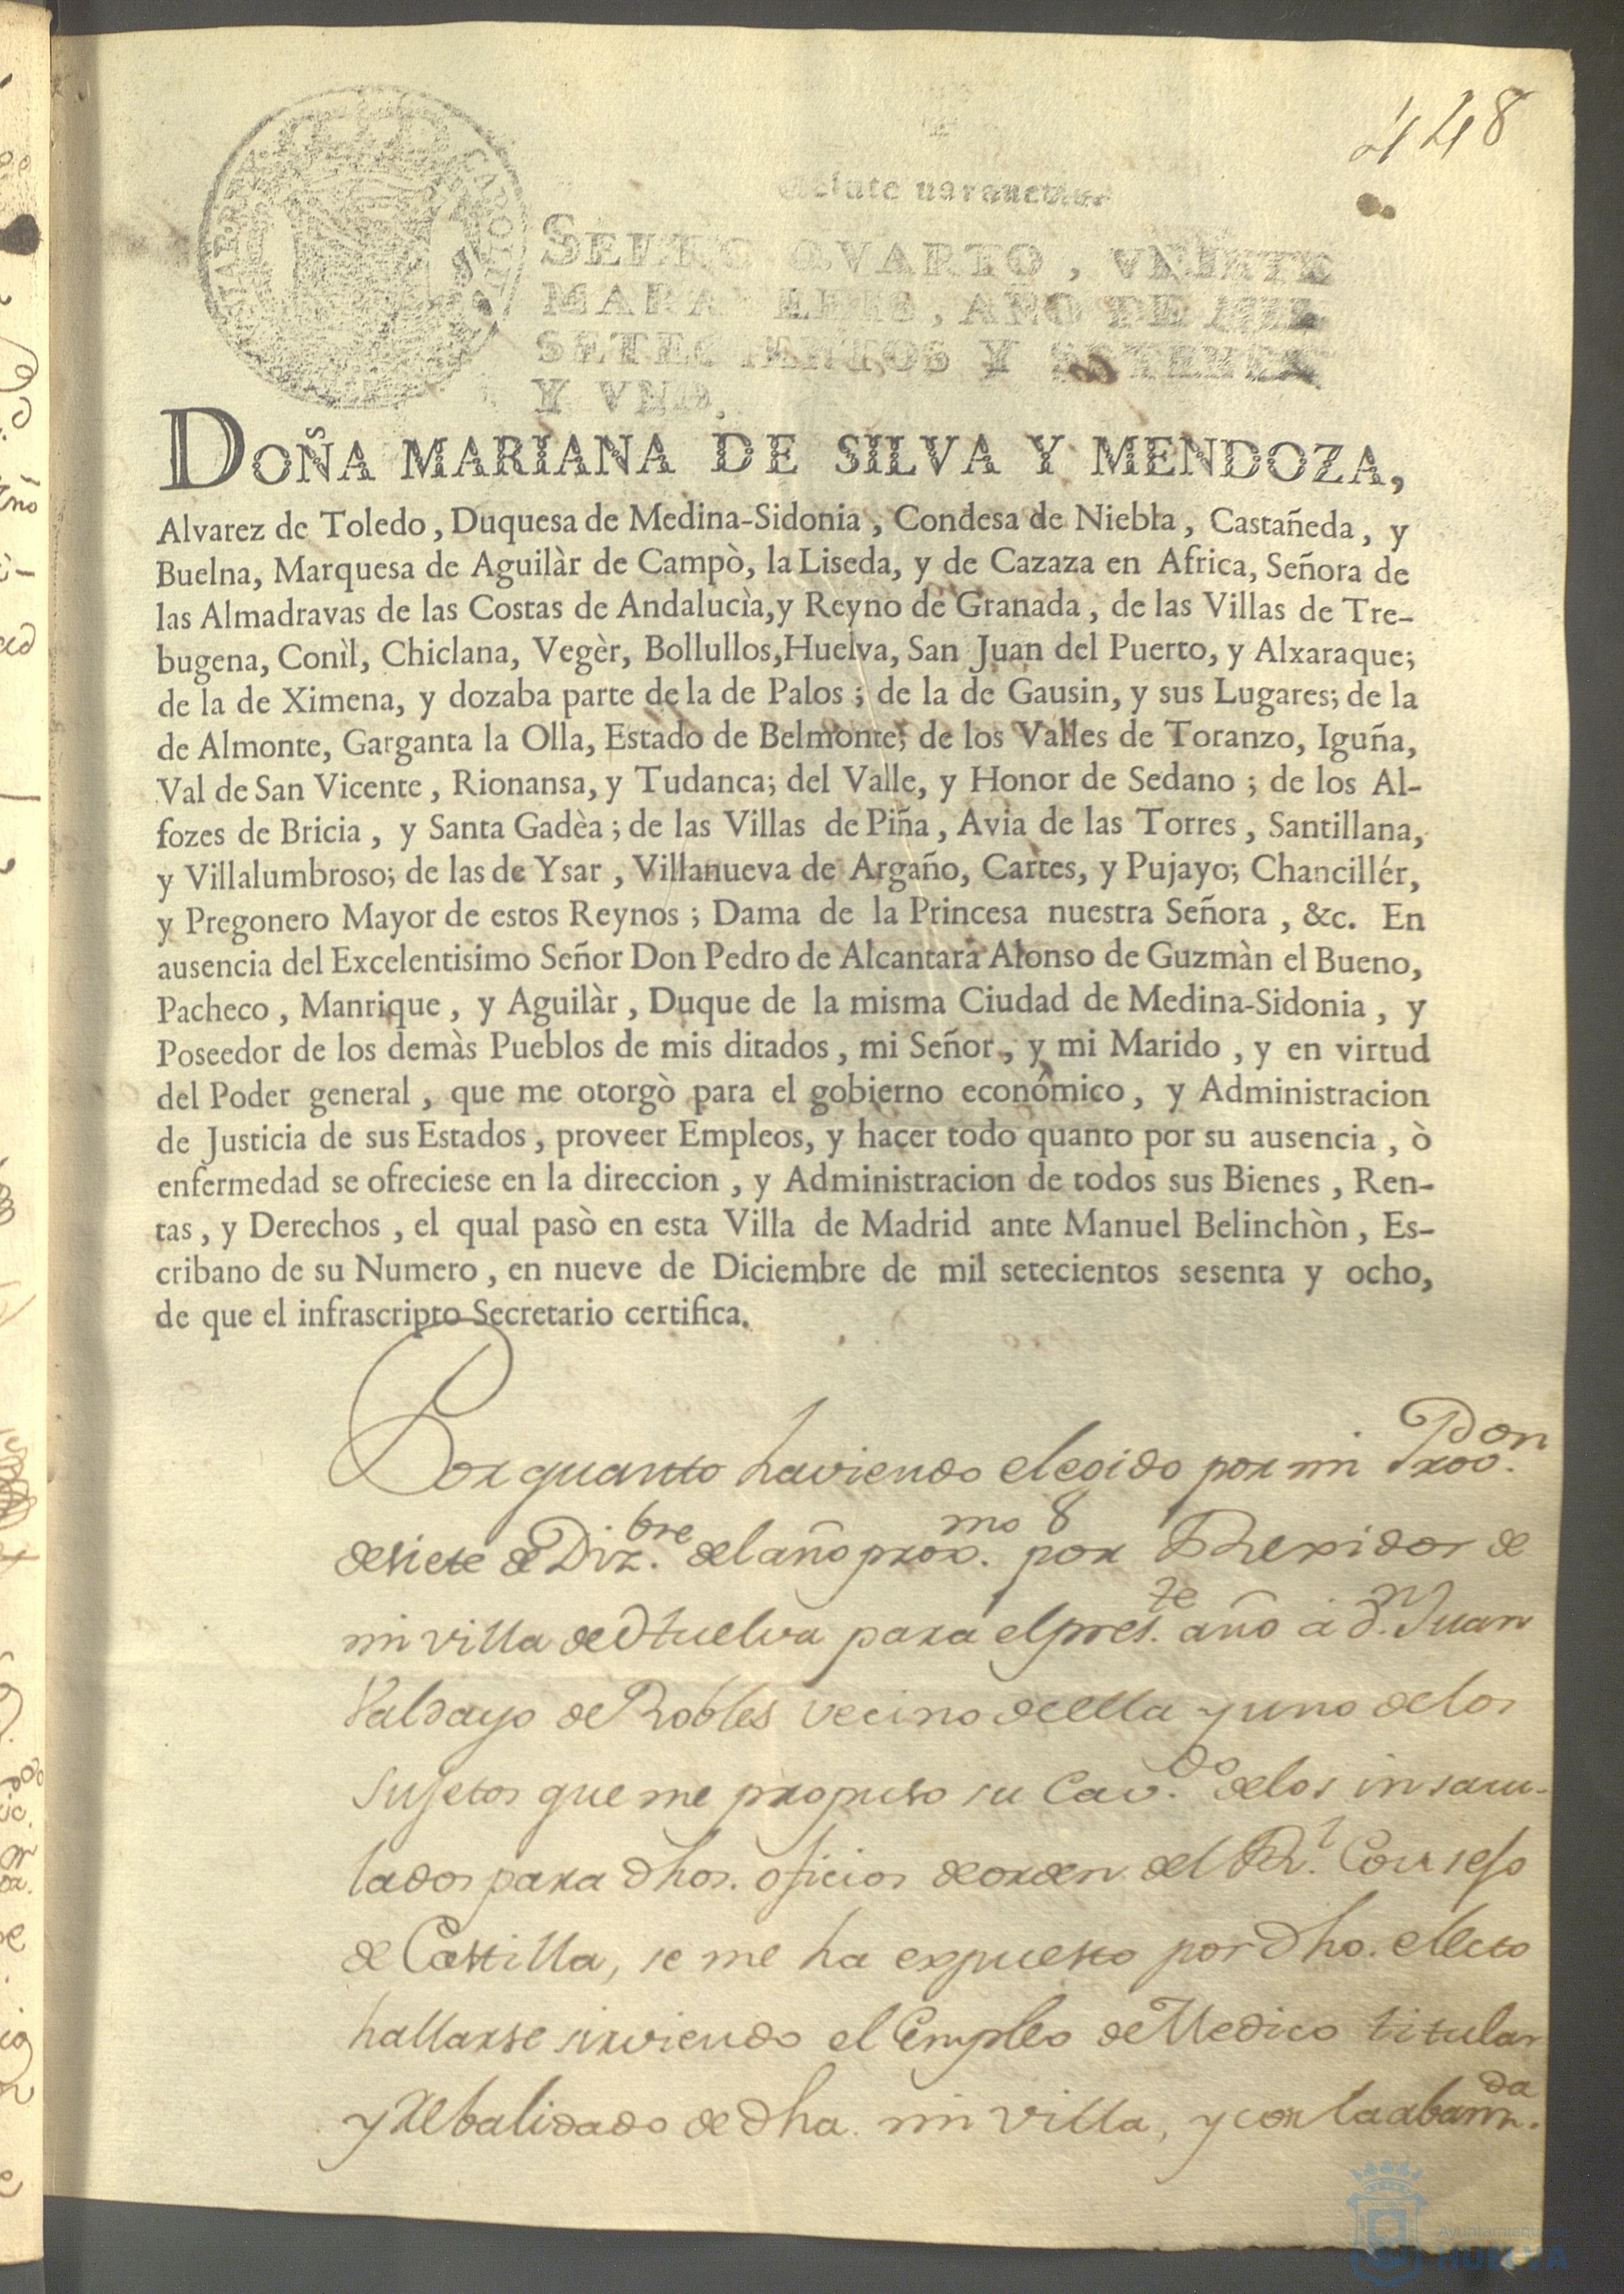 448
SELLO QVARTO, VEINTE
MARAVEDIS, AÑO DE MIL
SETECIENTOS Y SETENTA
Y VNO.
DOÑA MARIANA DE SILVA Y MENDOZA,
Alvarez de Toledo, Duquesa de Medina-Sidonia, Condesa de Niebla, Castañeda, y
Buelna, Marquesa de Aguilàr de Campò, la Liseda, y de Cazaza en Africa, Señora de
las Almadravas de las Costas de Andalucìa, y Reyno de Granada, de las Villas de Tre-
bugena, Conìl, Chiclana, Vegèr, Bollullos, Huelva, San Juan del Puerto, y Alxaraque;
de la de Ximena, y dozaba parte de la de Palos; de la de Gausin, y sus Lugares; de la
de Almonte, Garganta la Olla, Estado de Belmonte; de los Valles de Toranzo, Iguña,
Val de San Vicente, Rionansa, y Tudanca; del Valle, y Honor de Sedano; de los Al-
fozes de Bricia, y Santa Gadèa; de las Villas de Piña, Avia de las Torres, Santillana,
y Villalumbroso; de las de Ysar, Villanueva de Argaño, Cartes, y Pujayo; Chancillér,
y Pregonero Mayor de estos Reynos; Dama de la Princesa nuestra Señora, &c. En
ausencia del Excelentisimo Señor Don Pedro de Alcantara Alonso de Guzmàn el Bueno,
Pacheco, Manrique, y Aguilàr, Duque de la misma Ciudad de Medina-Sidonia, y
Poseedor de los demàs Pueblos de mis ditados, mi Señor, y mi Marido, y en virtud
del Poder general, que me otorgò para el gobierno económico, y Administracion
de Justicia de sus Estados, proveer Empleos, y hacer todo quanto por su ausencia, ò
enfermedad se ofreciese en la direccion, y Administracion de todos sus Bienes, Ren-
tas, y Derechos, el qual pasò en esta Villa de Madrid ante Manuel Belinchòn, Es-
cribano de su Numero, en nueve de Diciembre de mil setecientos sesenta y ocho,
de que el infrascripto Secretario certifica.
Por quanto haviendo elegido por mi Prov.on
de siete de Diz.bre del año prox.mo por Rexidor de
mi villa de Huelva para el pres.te año á d.n Juan
Valdayo de Robles vecino de ella y uno de los
sujetos que me propuso su Cav.do de los insacu-
lados para dhos. oficios de orden del R.l Consejo
de Castilla, se me ha expuesto por dho. electo
hallarse sirviendo el Empleo de Medico titular
y rebalidado de dha. mi villa, y con la
Ayuntamiento de
HUELVA